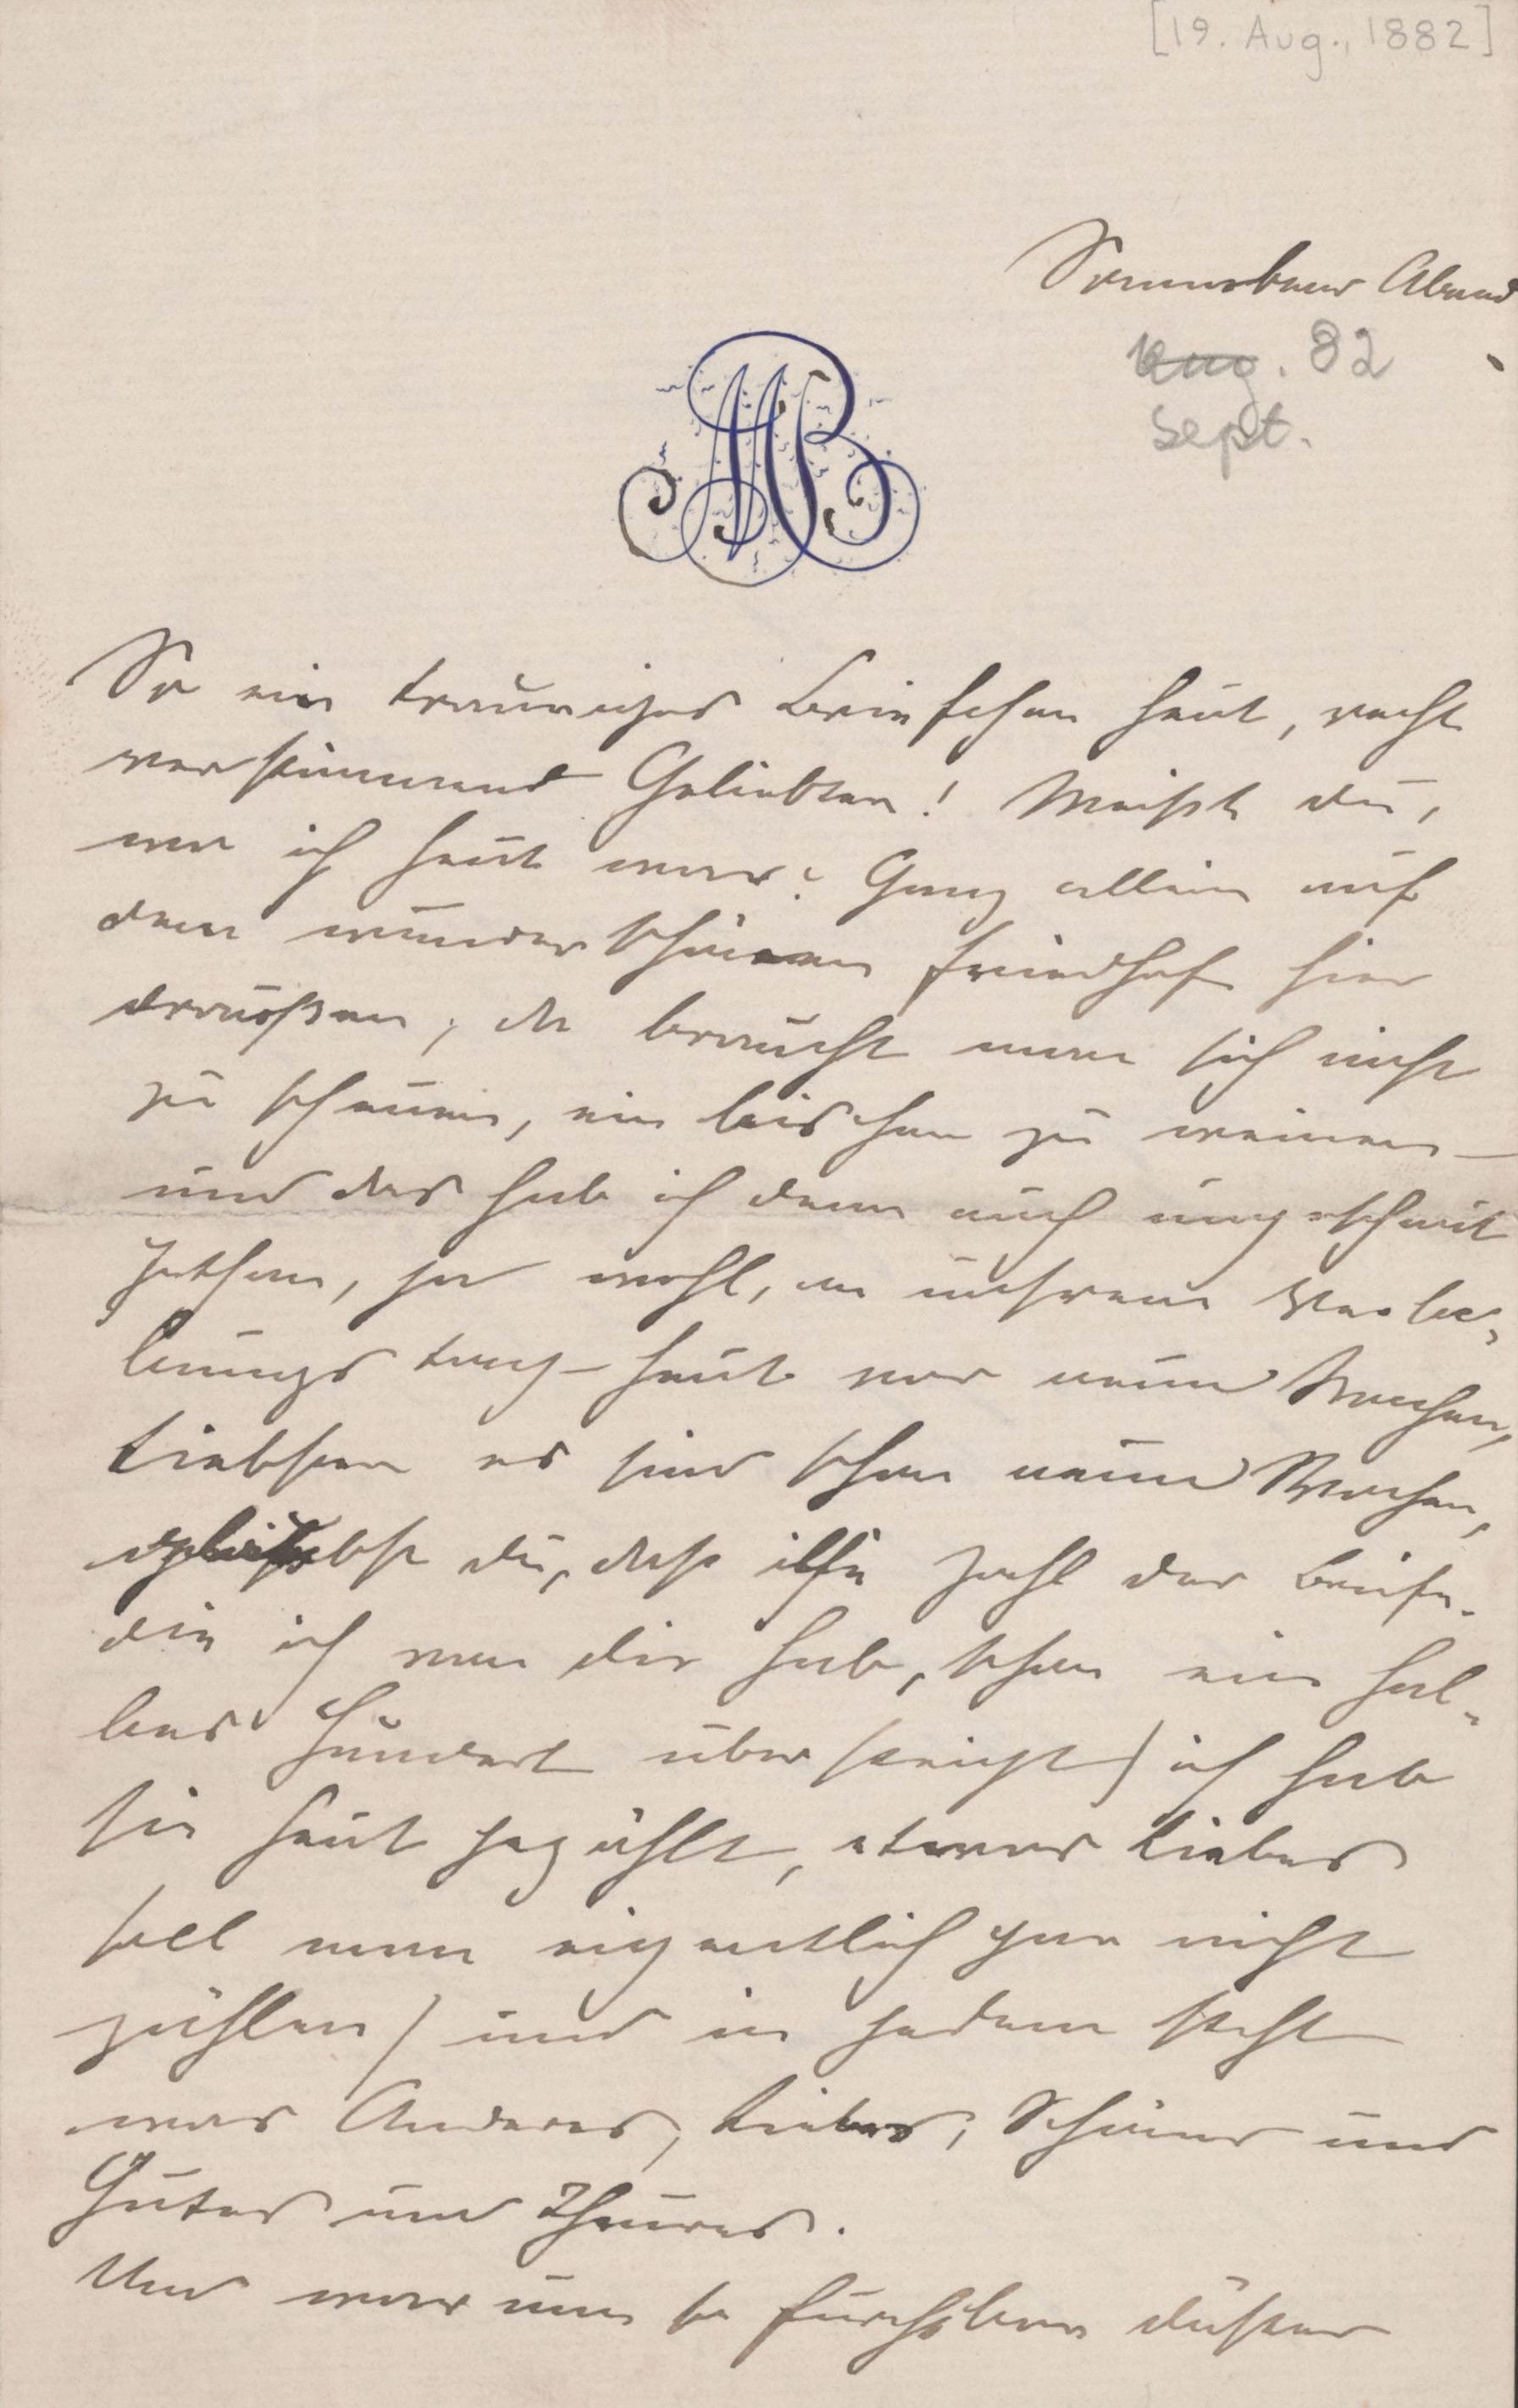 [19. Aug., 1882]
Sonnabend Abend
Aug. 82
Sept.
MB
So ein trauriges Briefchen heut, recht
verstimmend Geliebter! Weißt du,
wo ich heut war? Ganz allein auf
dem wunderschönen Friedhof hier
draußen, da braucht man sich nicht
zu scheuen, ein bischen zu weinen –
und das hab ich denn auch ungescheut
gethan, ja wohl, an unsrem Verlo-
bungstag – heut vor neun Wochen,
Liebster es sind schon neun Wochen,
glaubst du, daß die Zahl der Briefe
die ich von dir hab, schon ein hal-
bes Hundert übersteigt (ich hab
sie heut gezählt, etwas Liebes
soll man eigentlich gar nicht
zählen) und in jedem steht
was Anderes, Liebes, Schönes und
Gutes und Theures.
Und warum so furchtbar düster